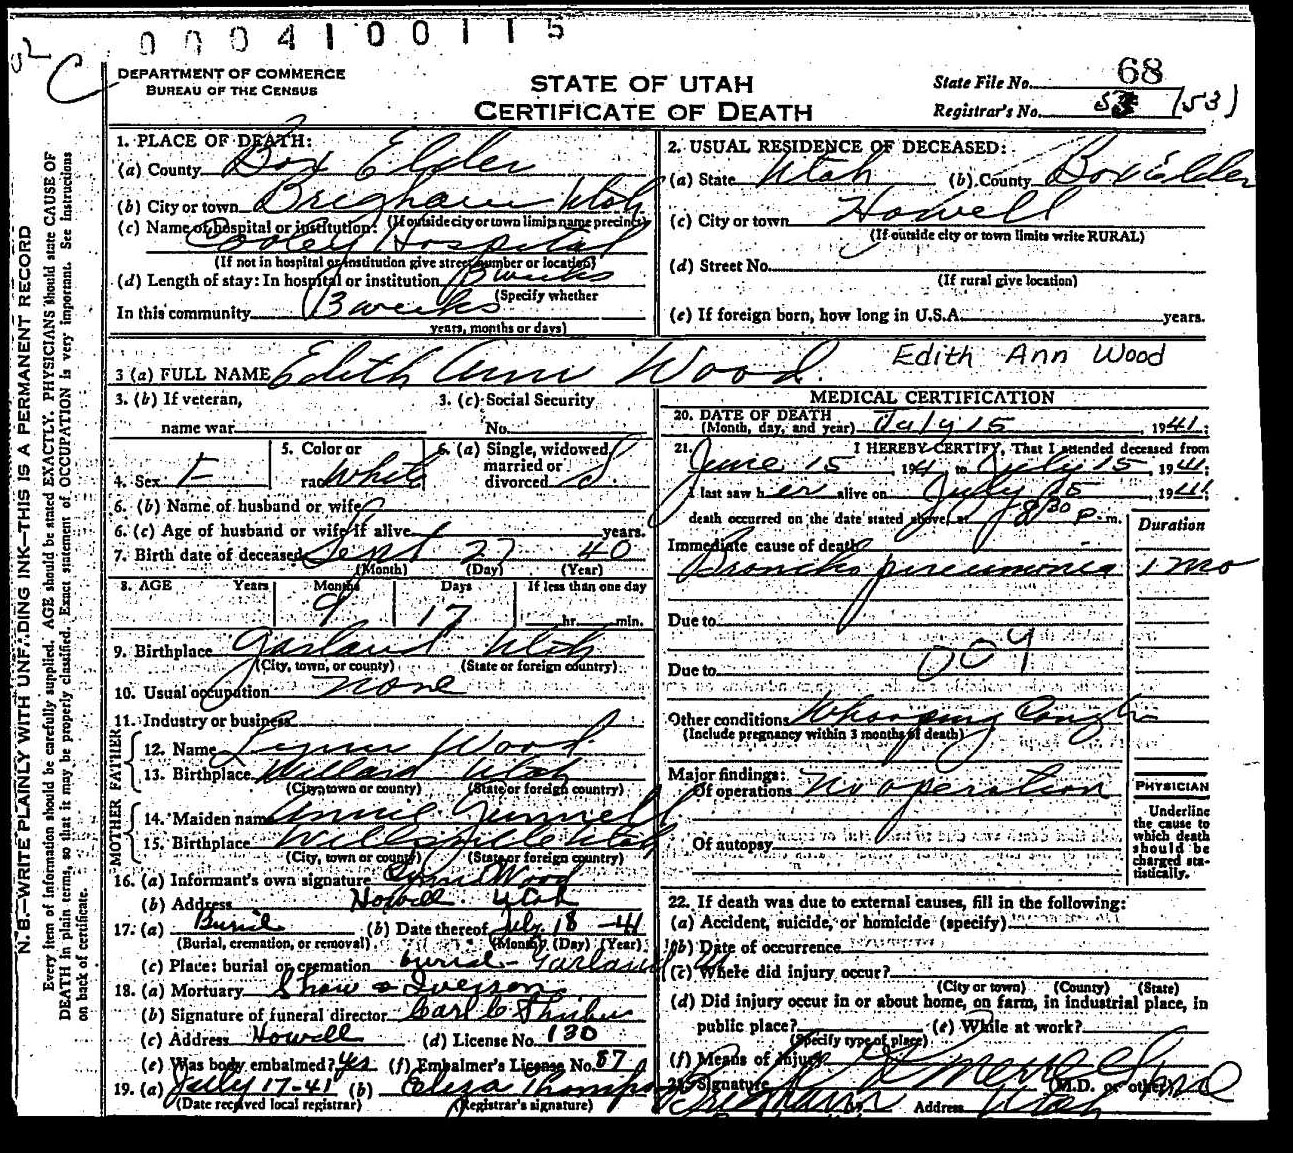 0004100115
C
DEPARTMENT OF COMMERCE
BUREAU OF THE CENSUS
STATE OF UTAH
CERTIFICATE OF DEATH
State File No. 68
Registrar's No. 53 (53)
N. B.—WRITE PLAINLY WITH UNFADING INK—THIS IS A PERMANENT RECORD
Every item of information should be carefully supplied. AGE should be stated EXACTLY. PHYSICIANS should state CAUSE OF
DEATH in plain terms, so that it may be properly classified. Exact statement of OCCUPATION is very important. See instructions
on back of certificate.
1. PLACE OF DEATH:
(a) County Box Elder
(b) City or town Brigham Utah
(If outside city or town limits name precinct)
(c) Name of hospital or institution:
Cooley Hospital
(If not in hospital or institution give street number or location)
(d) Length of stay: In hospital or institution 3 weeks
(Specify whether
In this community 3 weeks
years, months or days)
2. USUAL RESIDENCE OF DECEASED:
(a) State Utah (b) County Box Elder
(c) City or town Howell
(If outside city or town limits write RURAL)
(d) Street No.
(If rural give location)
(e) If foreign born, how long in U.S.A. years.
3 (a) FULL NAME Edith Ann Wood Edith Ann Wood
3. (b) If veteran,
name war
3. (c) Social Security
No.
4. Sex F
5. Color or
race White
6. (a) Single, widowed
married or
divorced S.
6. (b) Name of husband or wife
6. (c) Age of husband or wife if alive years.
7. Birth date of deceased Sept 27 40
(Month) (Day) (Year)
8. AGE Years Months Days If less than one day
9 17 hr. min.
9. Birthplace Garland Utah
(City, town, or county) (State or foreign country)
10. Usual occupation none
11. Industry or business
FATHER
12. Name Wood
13. Birthplace Willard Utah
(City, town or county) (State or foreign country)
MOTHER
14. Maiden name Annie Gunnell
15. Birthplace Wellsville Utah
(City, town or county) (State or foreign country)
16. (a) Informant's own signature Wood
(b) Address Howell Utah
17. (a) Burial (b) Date thereof July 18 - 41
(Burial, cremation, or removal) (Month) (Day) (Year)
(c) Place: burial or cremation burial - Garland
18. (a) Mortuary Shaw & Iverson
(b) Signature of funeral director Carl C
(c) Address Howell (d) License No. 130
(e) Was body embalmed? yes (f) Embalmer's License No. 87
19. (a) July 17-41 (b) Eliza Thompson
(Date received local registrar) (Registrar's signature)
MEDICAL CERTIFICATION
20. DATE OF DEATH
(Month, day, and year) July 15, 1941;
21. I HEREBY CERTIFY, That I attended deceased from
June 15 1941 to July 15, 1941;
I last saw her alive on July 15, 1941
death occurred on the date stated above, at 8 30 p.m.
Duration
Immediate cause of death
Broncho pneumonia 1 mo
Due to
009
Due to
Other conditions Whooping Cough
(Include pregnancy within 3 months of death)
Major findings:
Of operations No operation
Of autopsy
PHYSICIAN
Underline
the cause to
which death
should be
charged sta-
tistically.
22. If death was due to external causes, fill in the following:
(a) Accident, suicide, or homicide (specify)
(b) Date of occurrence
(c) Where did injury occur?
(City or town) (County) (State)
(d) Did injury occur in or about home, on farm, in industrial place, in
public place? (e) While at work?
(Specify type of place)
(f) Means of injury
Signature (M.D. or other)
Brigham Address Utah